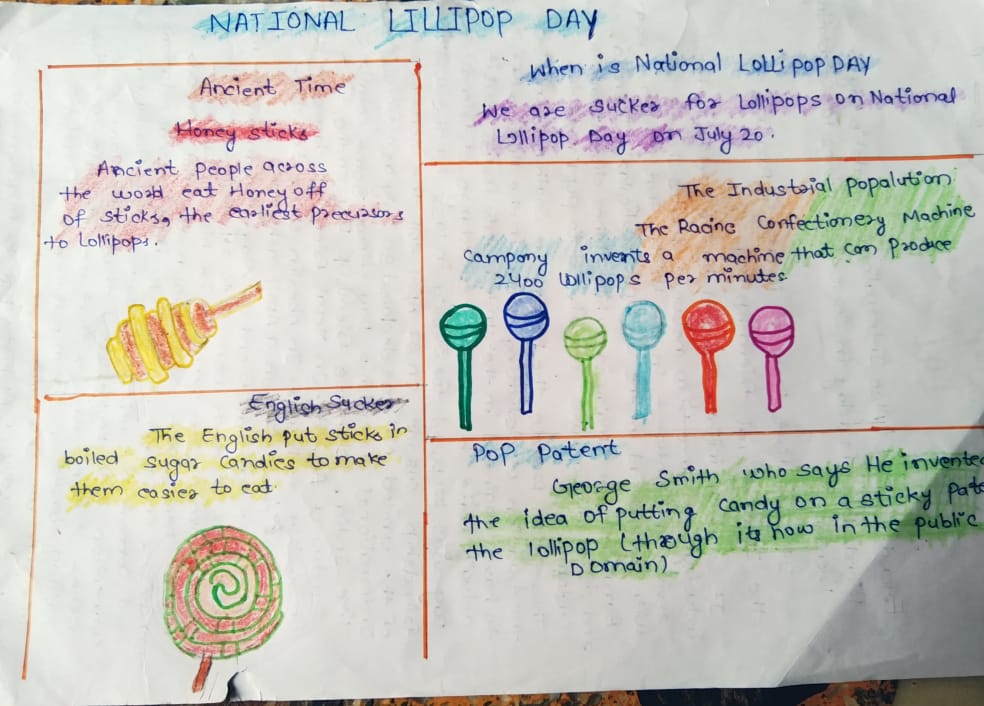 NATIONAL LILLIPOP DAY
Ancient Time
Honey sticks
Ancient People across
the world eat Honey off
of sticks, the earliest precursors
to Lollipops.
English Sucker
The English put sticks in
boiled sugar candies to make
them easier to eat.
When is National Lolli pop DAY
We are sucker for Lollipops on National
Lollipop Day on July 20.
The Industrial Popalution
The Racine Confectionery Machine
campony invents a machine that can Produce
2400 lollipops per minutes
Pop Patent
George Smith who says He invente
the idea of putting candy on a sticky Pate
the lollipop (though its now in the public
Domain)